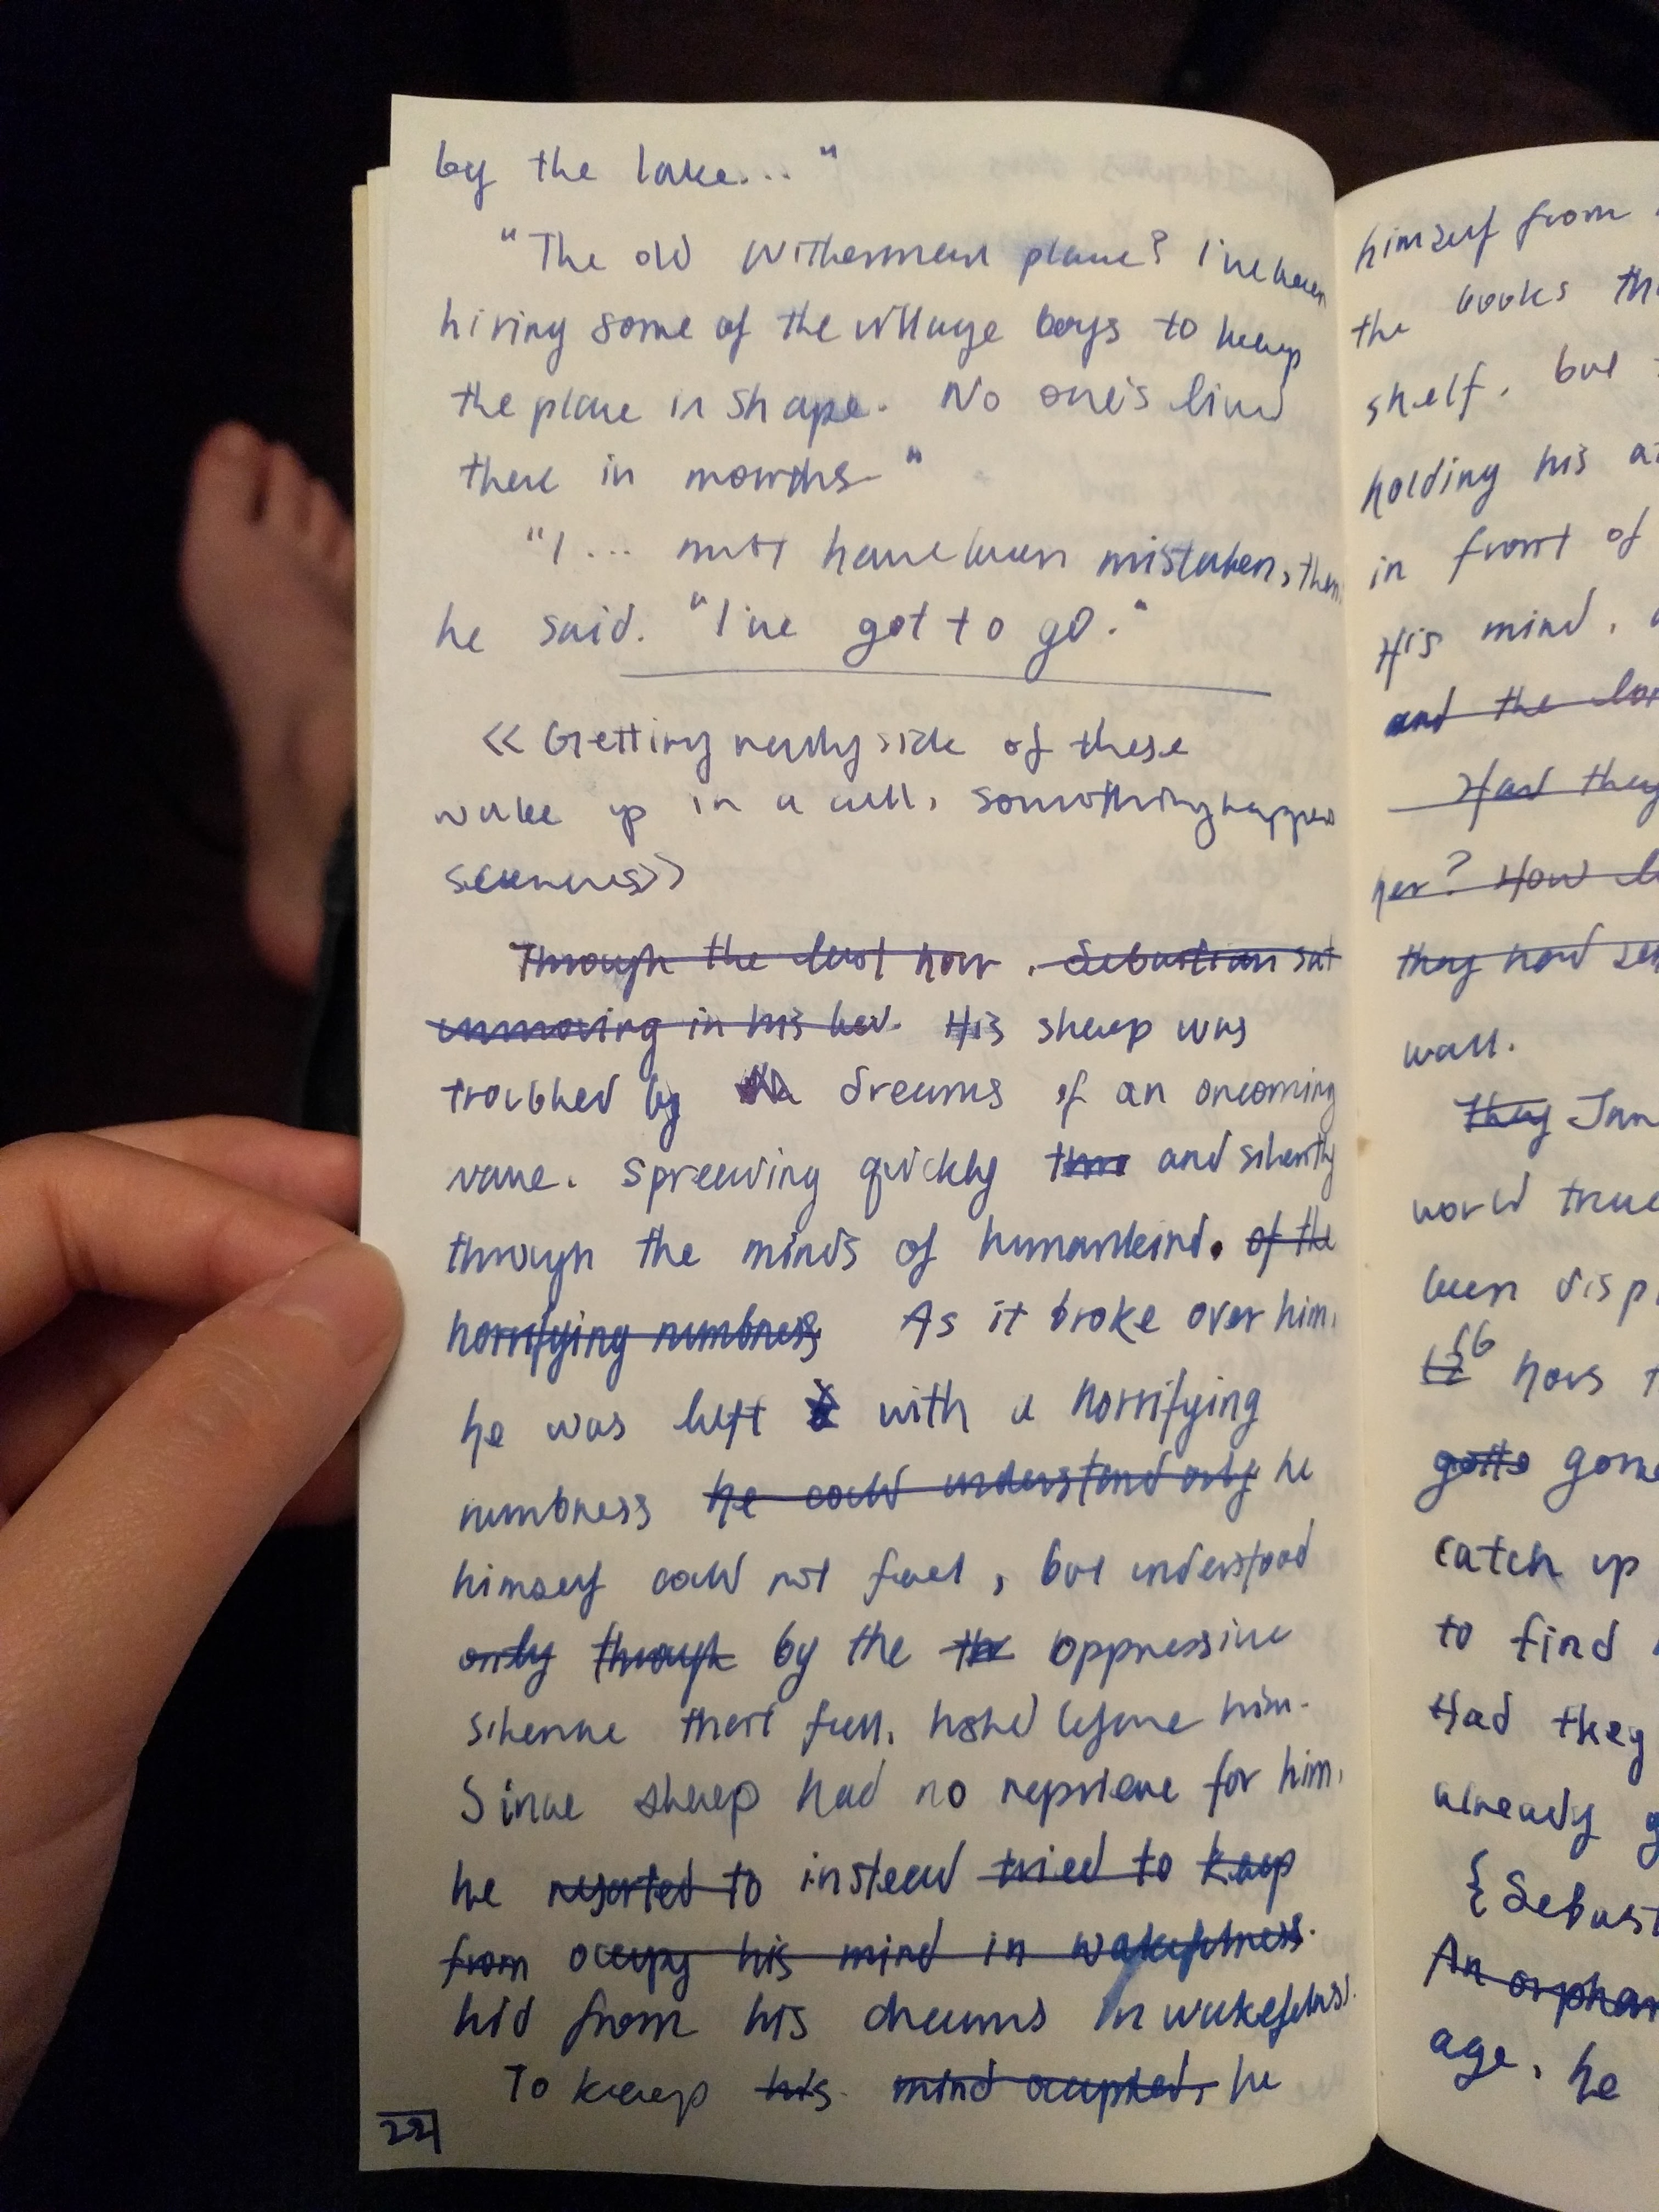 by the lake... "
"The old place? I've been
hiring some of the village boys to keep
the place in shape. No one's lived
there in months "
"I... must have been mistaken, then
he said. "I've got to go."
<< Getting really sick of these
wake up in a cell, something happens
>>
Through the last hour, Sebastian sat
unmoving in his bed. His sleep was
troubled by dreams of an oncoming
wave. Spreading quickly and silently
through the minds of humankind. of the
horrifying numbness As it broke over him,
he was left with a horrifying
numbness he could understand only he
himself could not feel, but understood
only through by the the oppressive
silence that fell, before him.
Since sleep had no reprieve for him,
he resorted to instead tried to keep
from occupy his mind in wakefulness.
hid from his dreams in wakefulness.
To keep his mind occupied, he
22
himself from
the books
shelf, but
holding his
in front of
His mind,
and the
Had they
her? How
they had
wall.
They
world
been
12 16 hours
gotte gone
catch up
to find
Had they
already
{
An orphan
age, he